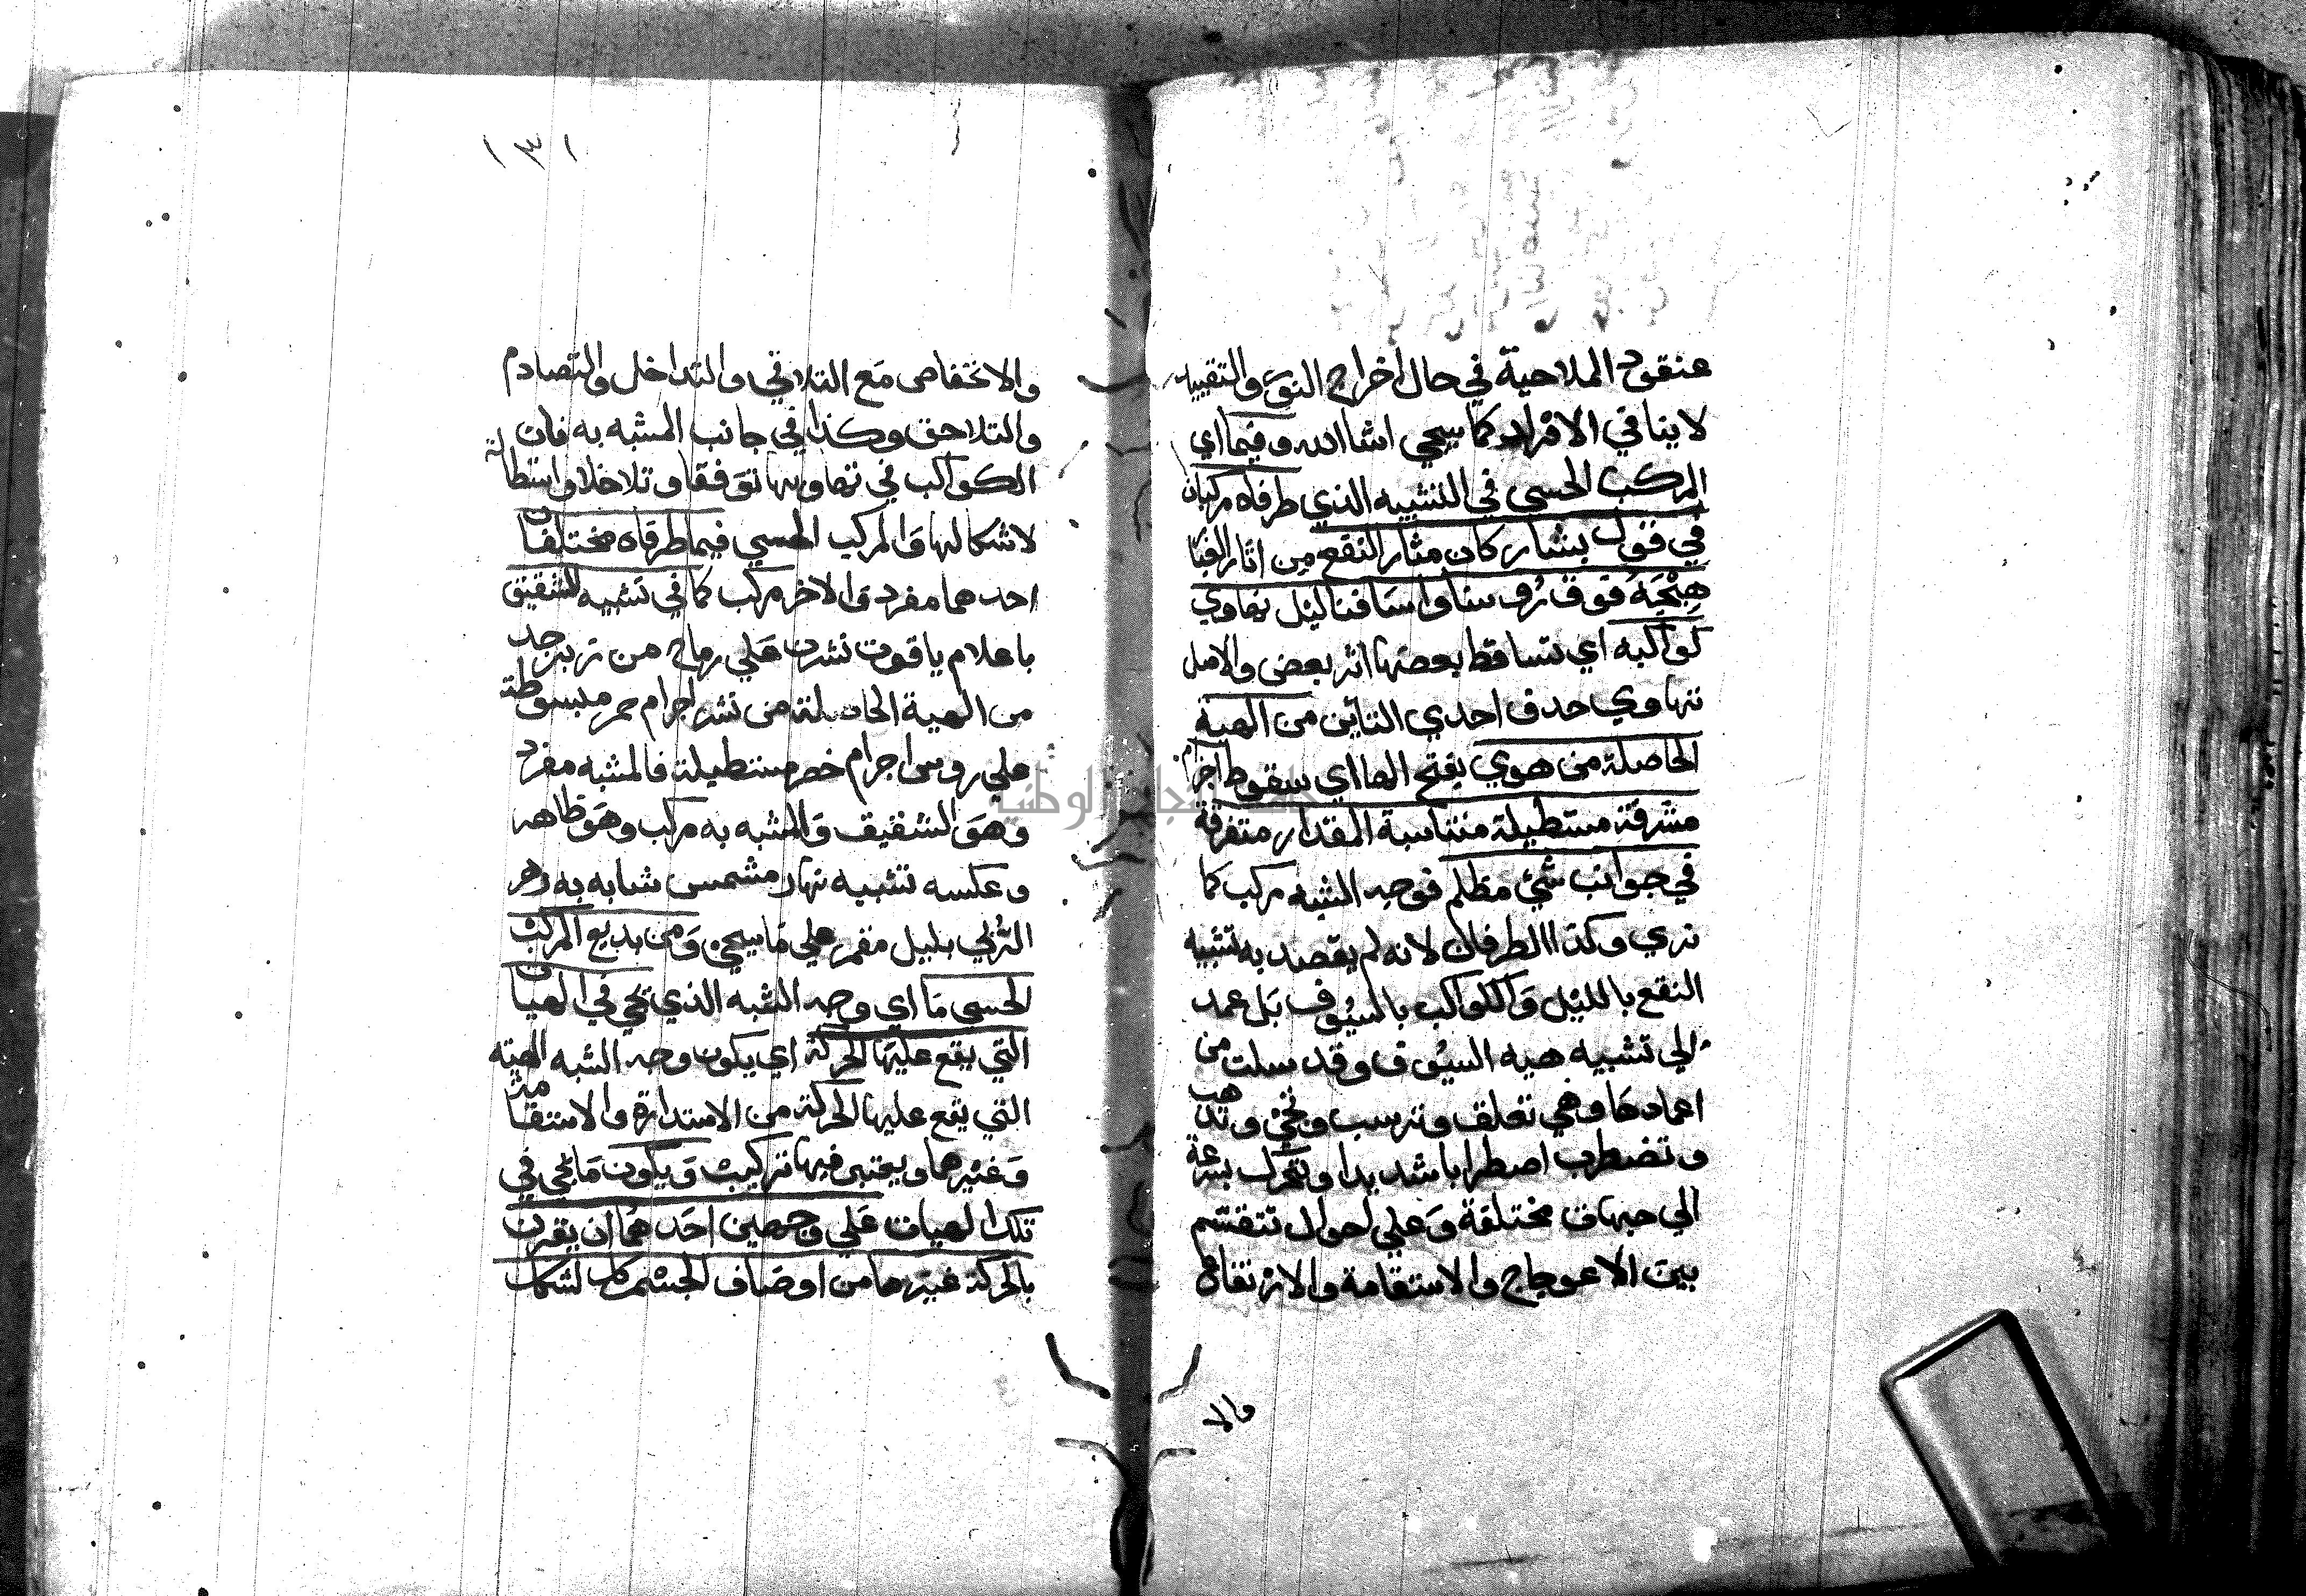 عنقود الملاحية في حال اخراج النور والتقييد
لا ينافي الافراد كما سيجي انشا الله وفيما اي
المركب الحسي في التشبيه الذي طرفاه مركبان
في قول بشار كان مثار النقع من اثار الغبا
هيجه فوق رؤسنا واسيافنا ليل تهاوي
كواكبه اي تتساقط بعضها اثر بعض والاصل
تتهاوي حدف احدي التائين من الهية
الحاصلة من هوي بفتح الها اي سقوط اجرام
مشرقة مستطيلة متناسبة المقدار متفرقة
في جوانب شي مظلم فوجه الشبه مركب كما
تري وكذا الطرفان لانه لم يقصد به تشبيه
النقع بالليل والكواكب بالسيوف بل عمد
الي تشبيه هية السيوف وقد سلت من
اغمادها وهي تعلق وترسب وتجي وتذهب
وتضطرب اضطرابا شديدا وتتحرك بسرعة
الي جهات مختلفة وعلي احوال تنقسم
بين الاعوجاج والاستقامة والارتفاع
والا
١٣١
والانخفاض مع التلاقي والتداخل والتصادم
والتلاحق وكذا في جانب المشبه به فان
الكواكب في تهاويها توقفا وتداخلا واستطالة
لاشكالها والمركب الحسي فيما طرفاه مختلفان
احدهما مفرد والاخر مركب كما في تشبيه الشقيق
باعلام ياقوت نشرت علي رماح من زبرجد
من الهية الحاصلة من نشر اجرام حمر مبسوطة
علي روس اجرام خضر مستطيلة فالمشبه مفرد
وهو الشقيق والمشبه به مركب وهو ظاهر
وعكسه تشبيه نهار مشمس شابه به زهر
الربي بليل مقمر علي ما سيجي ومن بديع المركب
الحسي ما اي وجه الشبه الذي يجي في الهيات
التي يقع عليها الحركة اي يكون وجه الشبه الهية
التي يقع عليها الحركة من الاستدارة والاستقامة
وغيرهما ويعتبر فيها تركيب ويكون ما يجي في
تلك الهيات علي وجهين احدهما ان يقرن
بالحركة غيرها من اوصاف الجسم كالشكل